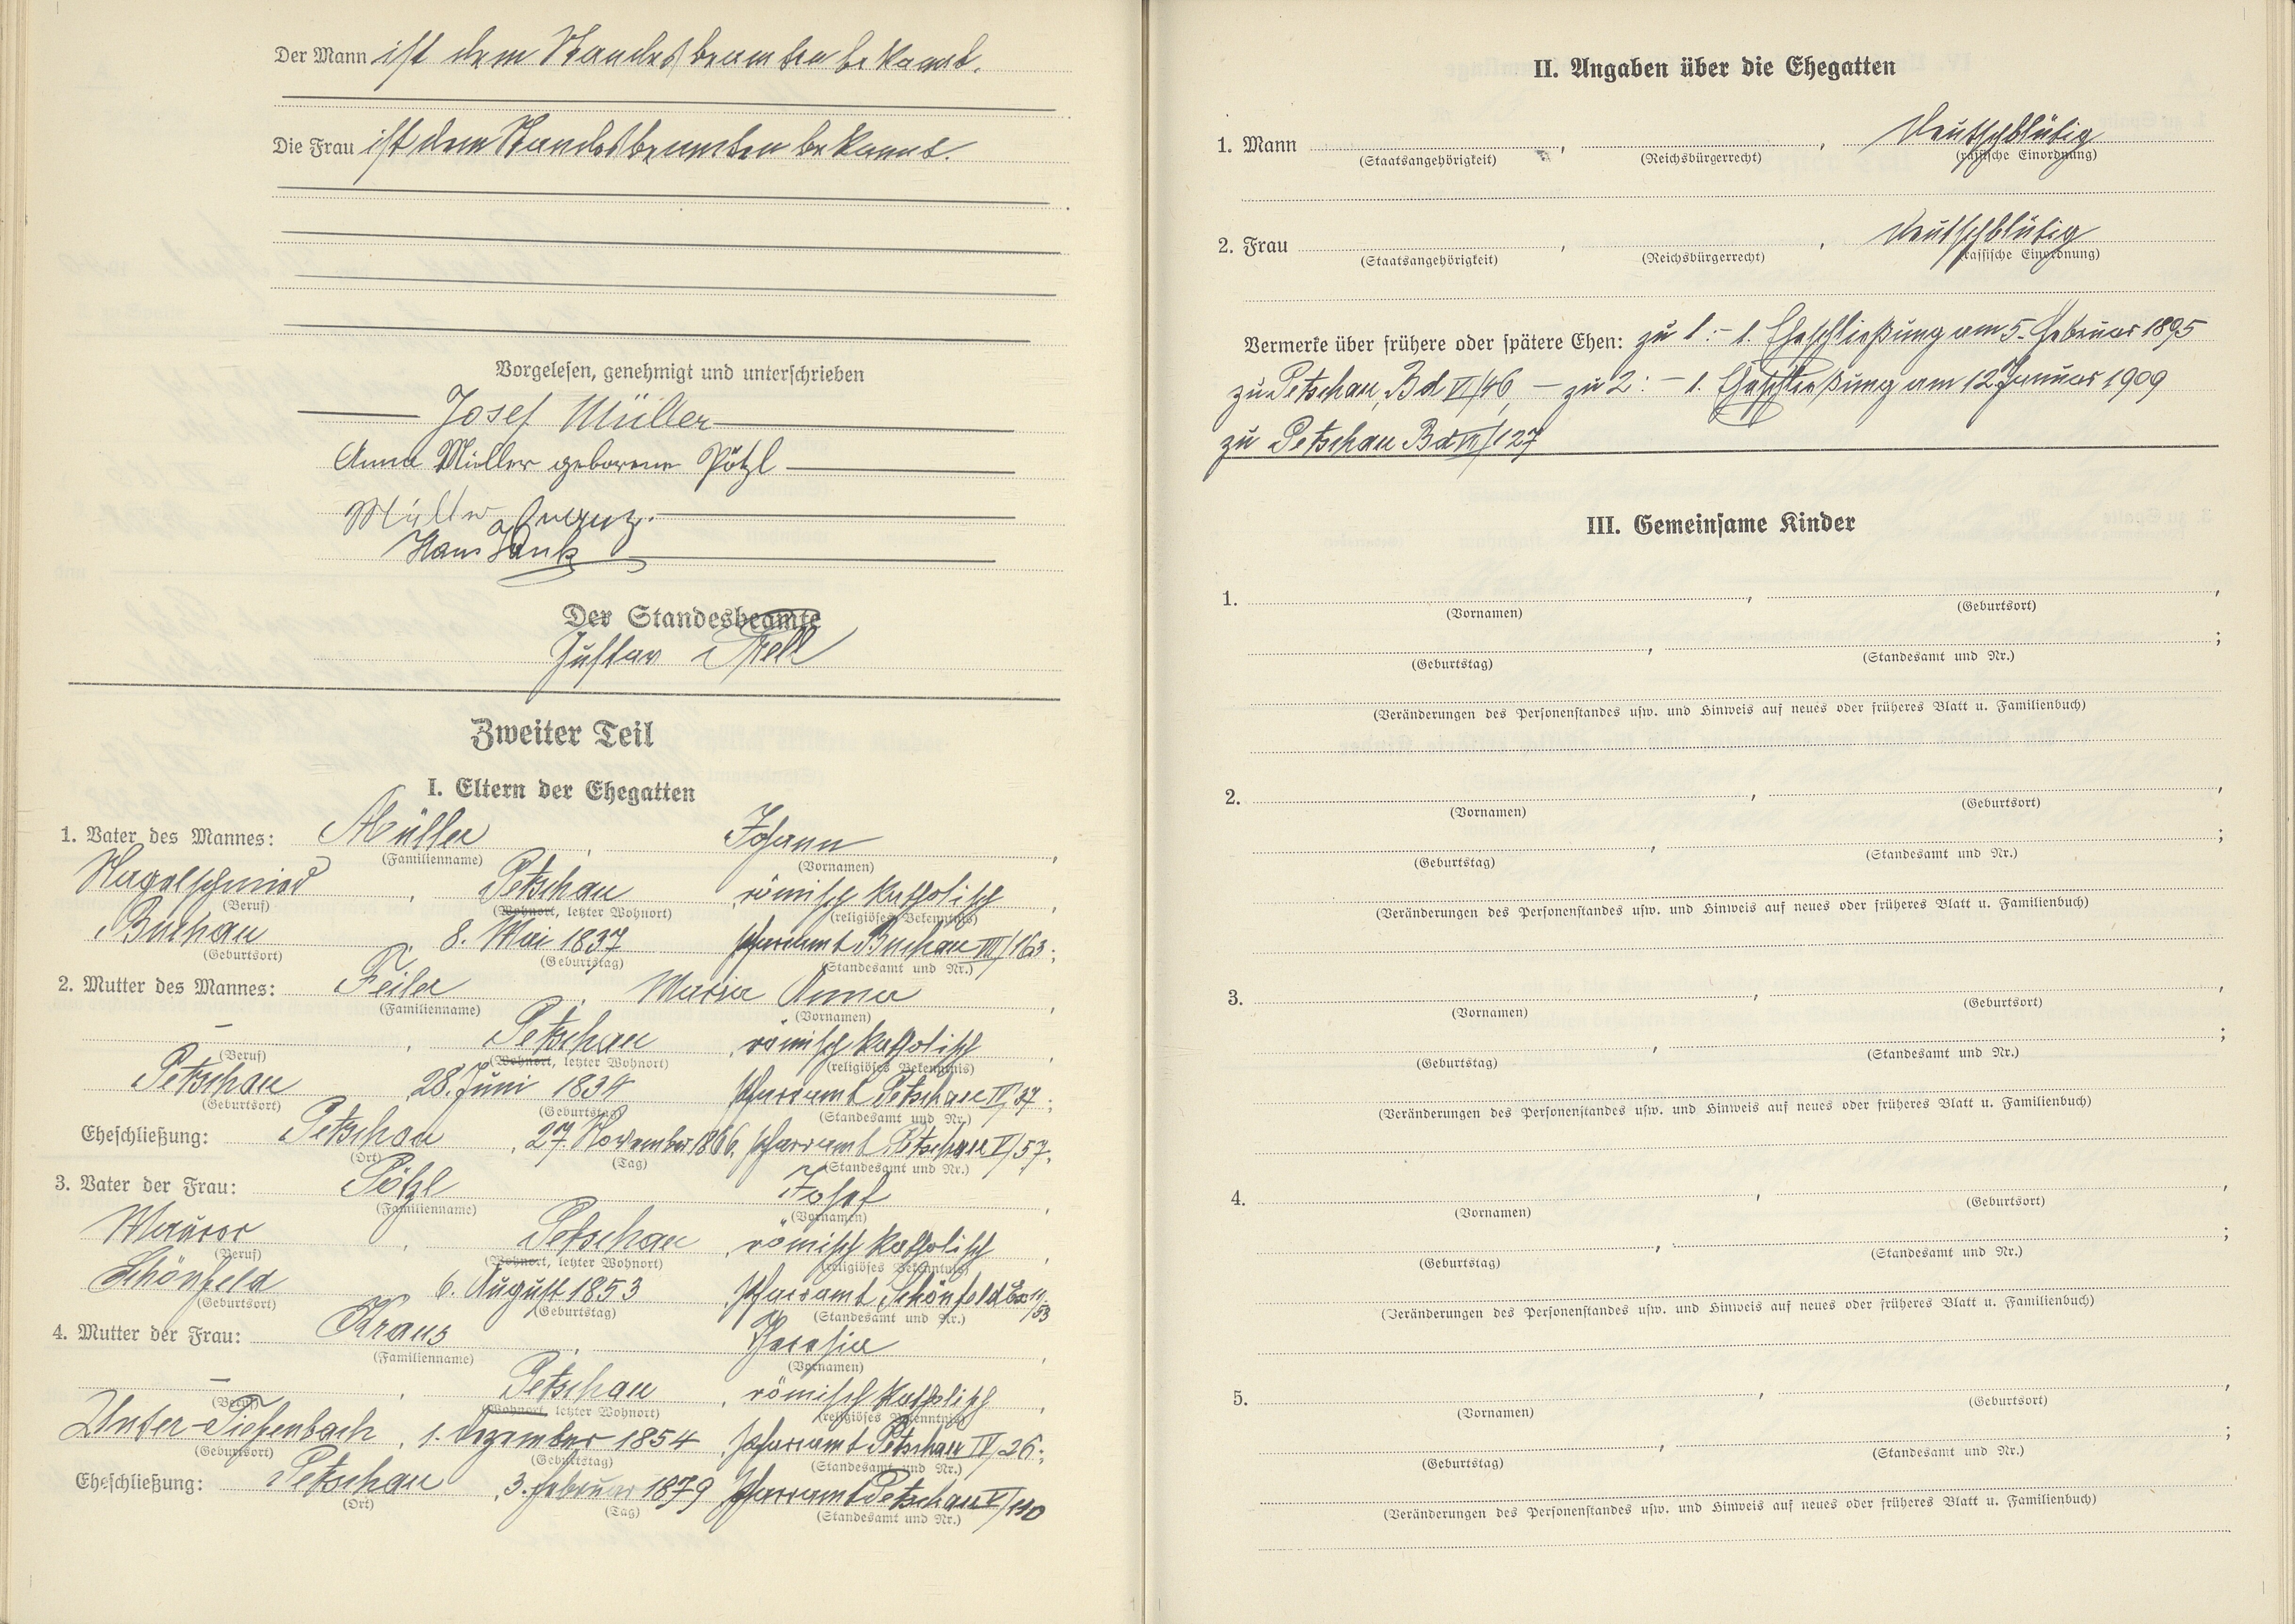 Der Mann ist dem Standesbeamten bekannt.
Die Frau ist dem Standesbeamten bekannt.
Vorgelesen, genehmigt und unterschrieben
Josef Müller
Anna Müller geborene Pötzl
Müller Franz.
Hans
Der Standesbeamte
Gustav
Zweiter Teil
I. Eltern der Ehegatten
1. Vater des Mannes: Müller, Johann,
(Familienname) (Vornamen)
Nagelschmied, Petschau, römisch katholisch,
(Beruf) (Wohnort, letzter Wohnort) (religiöses Bekenntnis)
Buchau, 8. Mai 1837, Pfarramt Buchau III/163;
(Geburtsort) (Geburtstag) (Standesamt und Nr.)
2. Mutter des Mannes: Feiler, Maria Anna,
(Familienname) (Vornamen)
–, Petschau, römisch katholisch,
(Beruf) (Wohnort, letzter Wohnort) (religiöses Bekenntnis)
Petschau, 28. Juni 1834, Pfarramt Petschau IV/37;
(Geburtsort) (Geburtstag) (Standesamt und Nr.)
Eheschließung: Petschau, 27. November 1866, Pfarramt Petschau V/57.
(Ort) (Tag) (Standesamt und Nr.)
3. Vater der Frau: Pötzl, Josef,
(Familienname) (Vornamen)
Maurer, Petschau, römisch katholisch,
(Beruf) (Wohnort, letzter Wohnort) (religiöses Bekenntnis)
Schönfeld, 6. August 1853, Pfarramt Schönfeld /53
(Geburtsort) (Geburtstag) (Standesamt und Nr.)
4. Mutter der Frau: Kraus, Theresia,
(Familienname) (Vornamen)
–, Petschau, römisch katholisch,
(Beruf) (Wohnort, letzter Wohnort) (religiöses Bekenntnis)
Unter-Tiefenbach, 1. Dezember 1854, Pfarramt Petschau IV/26;
(Geburtsort) (Geburtstag) (Standesamt und Nr.)
Eheschließung: Petschau, 3. Februar 1879 Pfarramt Petschau V/110
(Ort) (Tag) (Standesamt und Nr.)
II. Angaben über die Ehegatten
1. Mann , , deutschblütig
(Staatsangehörigkeit) (Reichsbürgerrecht) (rassische Einordnung)
2. Frau , , deutschblütig
(Staatsangehörigkeit) (Reichsbürgerrecht) (rassische Einordnung)
Vermerke über frühere oder spätere Ehen: zu 1:– 1. Eheschließung am 5. Februar 1895
zu Petschau, Bd VI/46, – zu 2: – 1. Eheschließung am 12. Januar 1909
zu Petschau Bd VI/127
III. Gemeinsame Kinder
1. , ,
(Vornamen) (Geburtsort)
, ;
(Geburtstag) (Standesamt und Nr.)
(Veränderungen des Personenstandes usw. und Hinweis auf neues oder früheres Blatt u. Familienbuch)
2. , ,
(Vornamen) (Geburtsort)
, ;
(Geburtstag) (Standesamt und Nr.)
(Veränderungen des Personenstandes usw. und Hinweis auf neues oder früheres Blatt u. Familienbuch)
3. , ,
(Vornamen) (Geburtsort)
, ;
(Geburtstag) (Standesamt und Nr.)
(Veränderungen des Personenstandes usw. und Hinweis auf neues oder früheres Blatt u. Familienbuch)
4. , ,
(Vornamen) (Geburtsort)
, ;
(Geburtstag) (Standesamt und Nr.)
(Veränderungen des Personenstandes usw. und Hinweis auf neues oder früheres Blatt u. Familienbuch)
5. , ,
(Vornamen) (Geburtsort)
, ;
(Geburtstag) (Standesamt und Nr.)
(Veränderungen des Personenstandes usw. und Hinweis auf neues oder früheres Blatt u. Familienbuch)